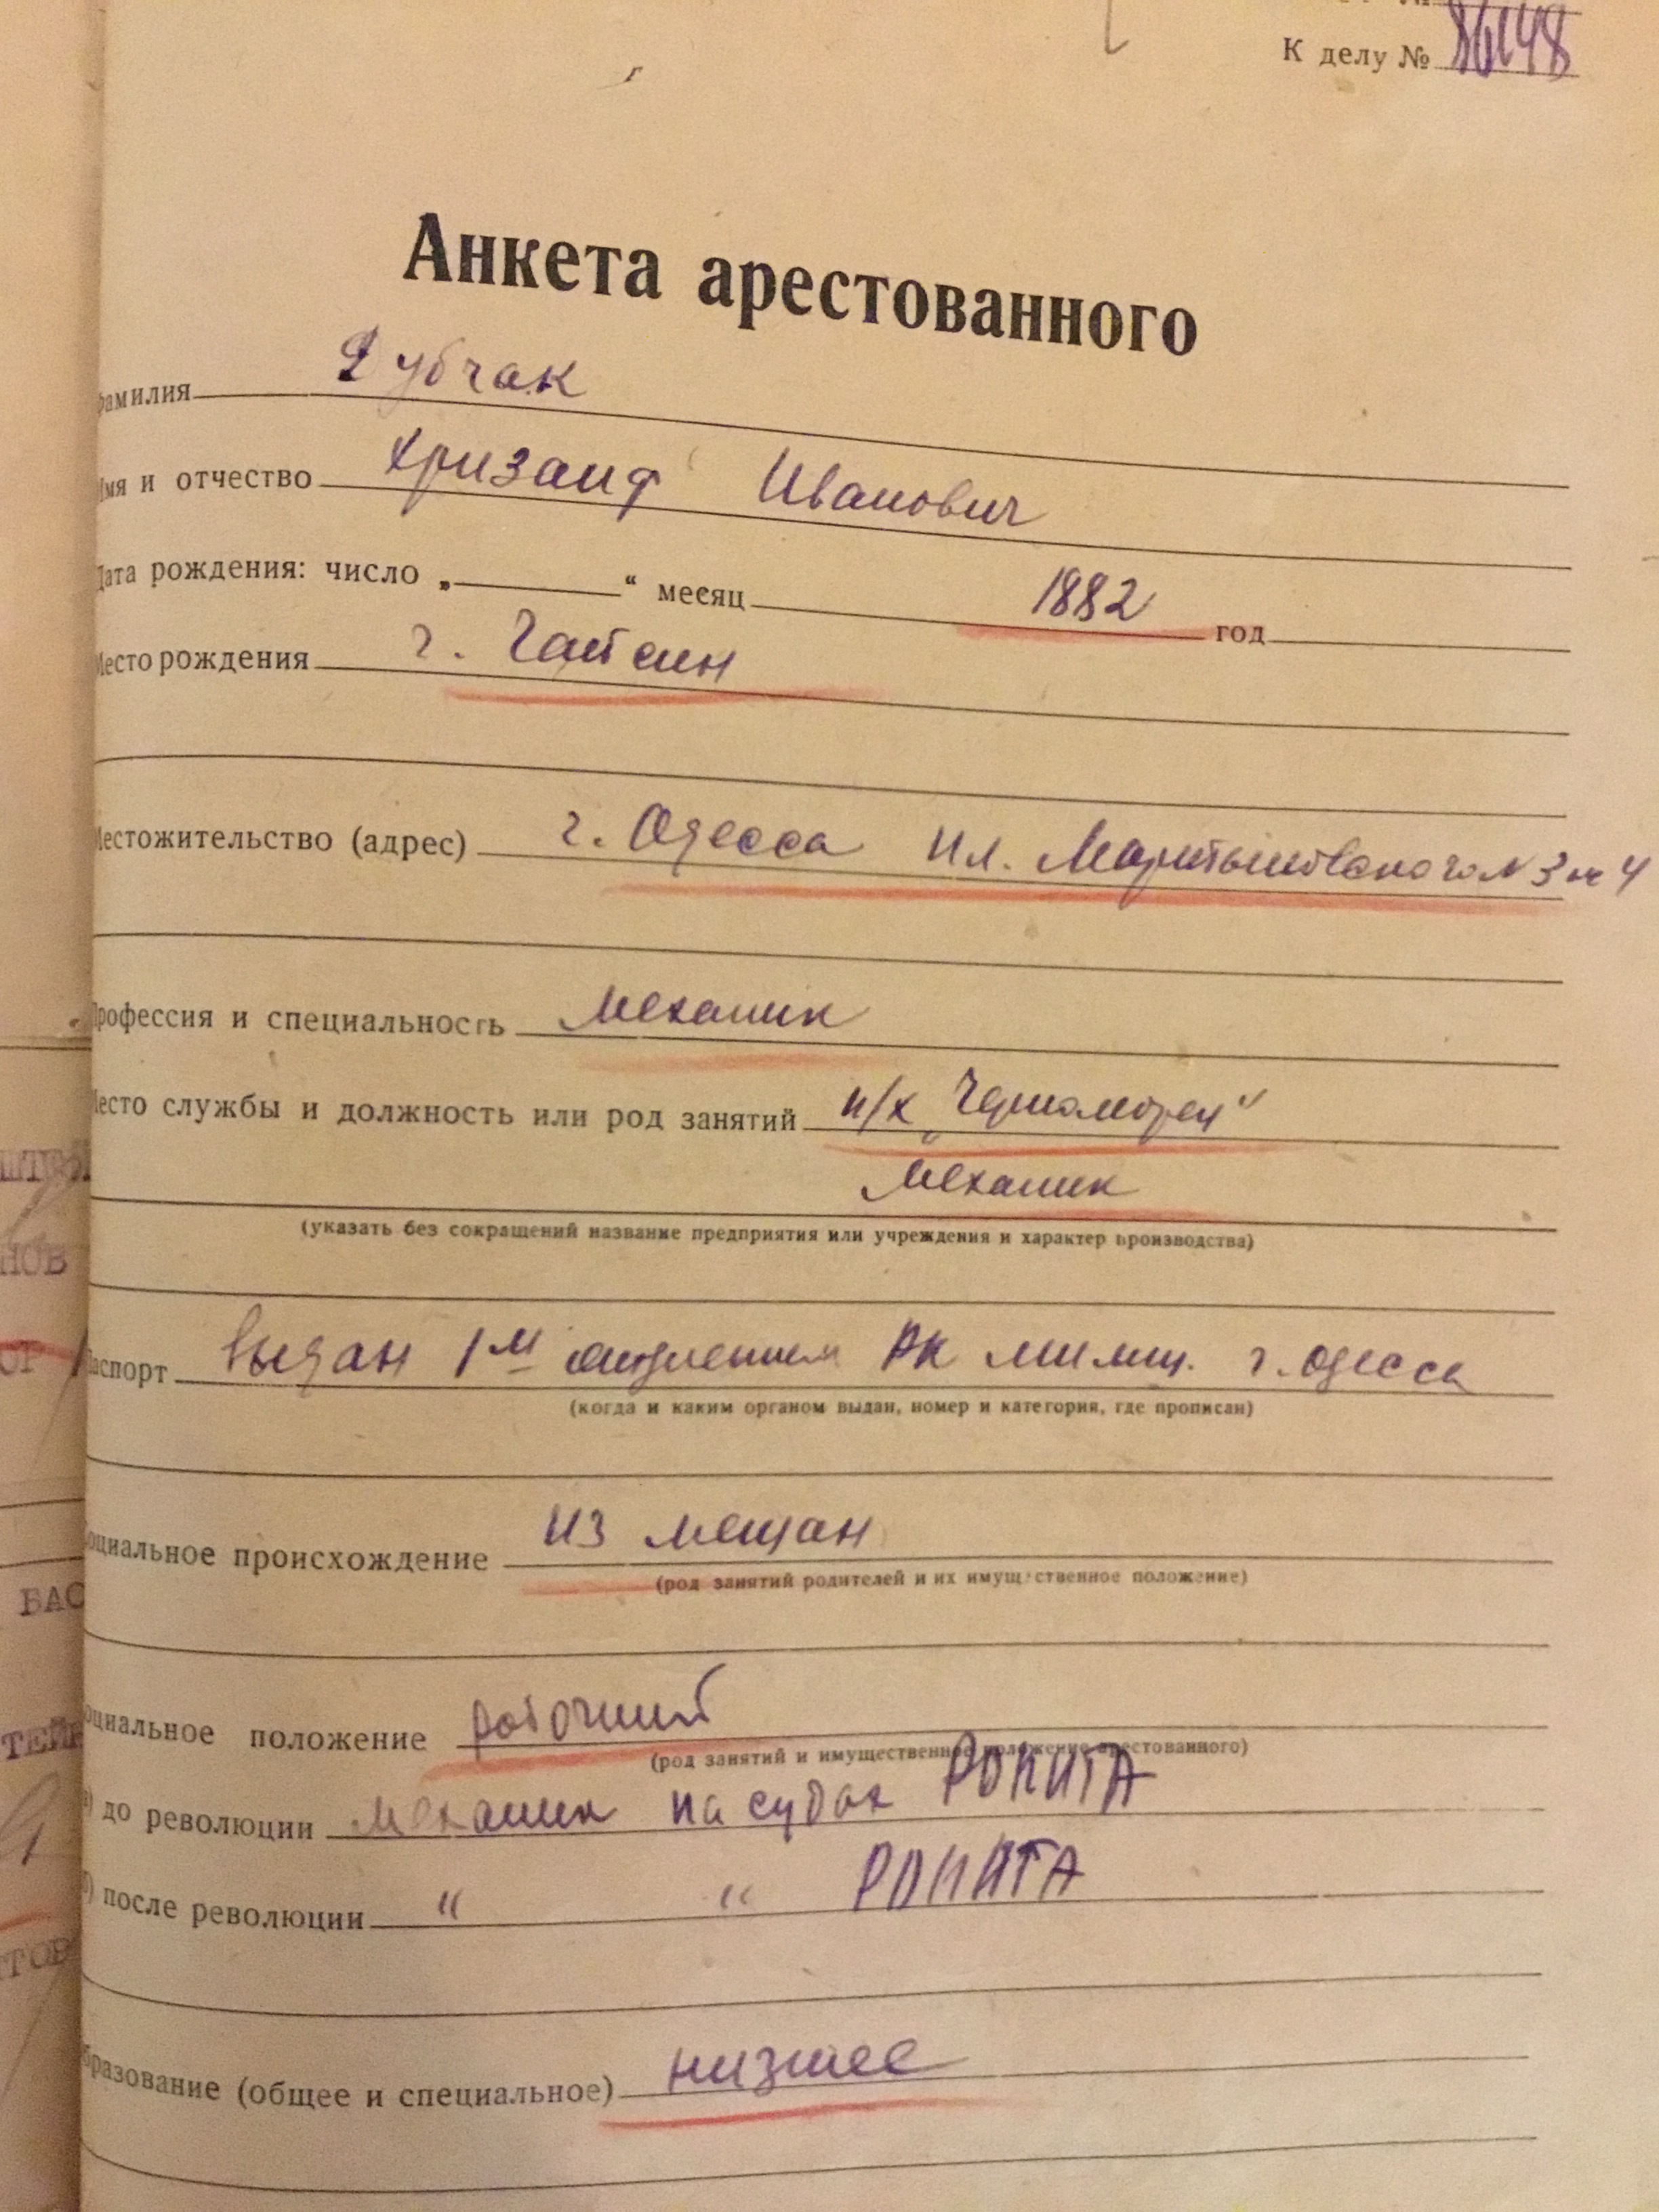 К делу №
Анкета арестованного
Фамилия Дубчак
Имя и отчество Хризанф Иванович
Дата рождения: число „ “ месяц 1882 год
Место рождения г. Гайсин
Местожительство (адрес) г. Одесса пл. Мартыновского N 3 кв 4
Профессия и специальность механик
Место службы и должность или род занятий п/х „Черноморец“
механик
(указать без сокращений название предприятия или учреждения и характер производства)
Паспорт выдан 1м отделением РК милиц. г. Одесса
(когда и каким органом выдан, номер и категория, где прописан)
Социальное происхождение из мещан
(род занятий родителей и их имущественное положение)
Социальное положение рабочий
(род занятий и имущественное положение арестованного)
а) до революции механик на судах РОПИТА
б) после революции " " РОПИТА
Образование (общее и специальное) низшее